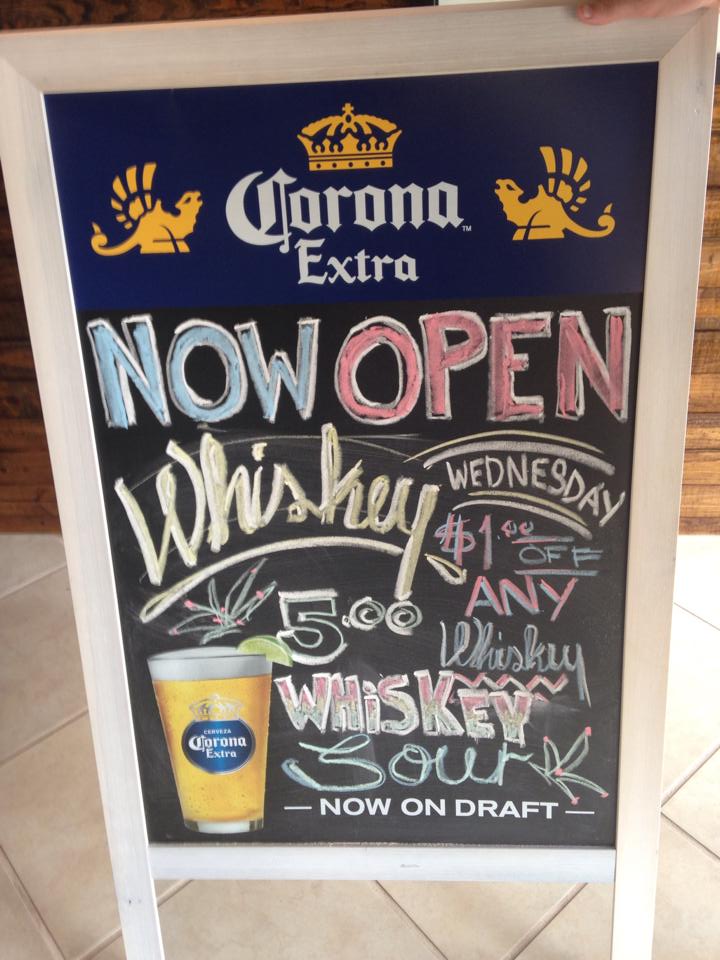 Corona™
Extra
NOW OPEN
Whiskey
WEDNESDAY
$1.00 OFF
ANY
Whiskey
5.00
WHiSKEY
Sour
CERVEZA
Corona
Extra
— NOW ON DRAFT —